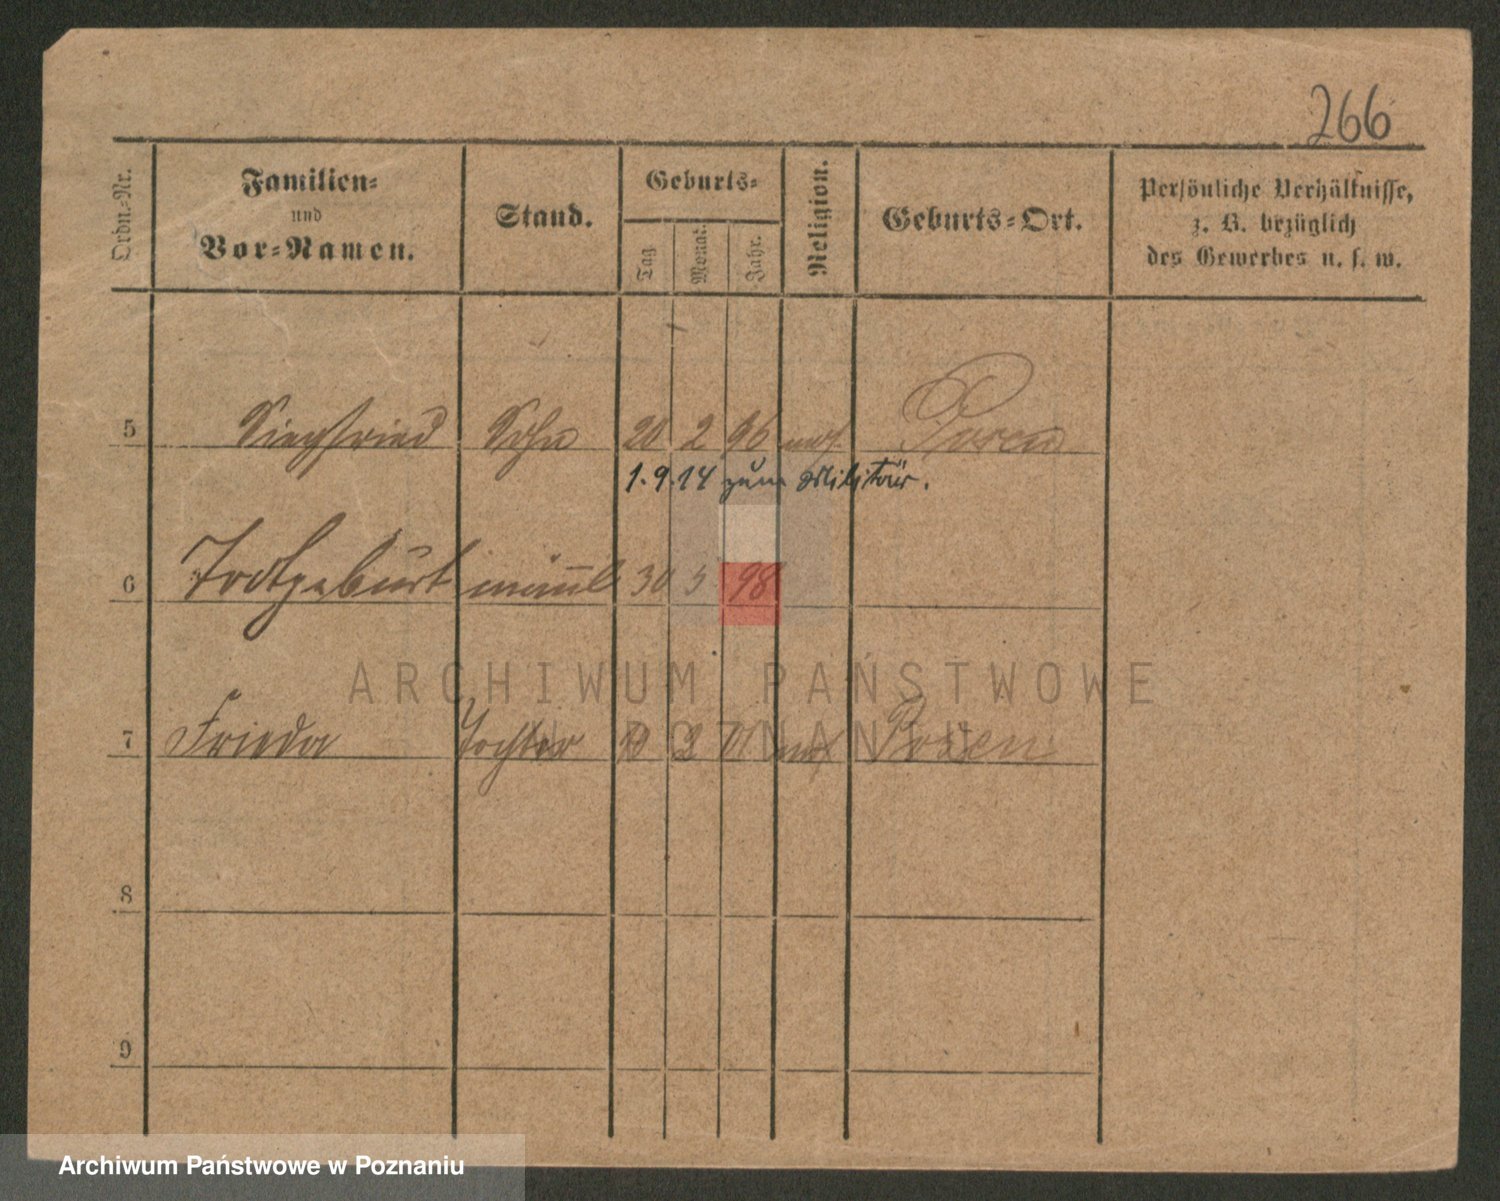 266
Ordn.-Nr.
Familien-
und
Vor-Namen.
Stand.
Geburts-
Tag
Monat.
Jahr.
Religion.
Geburts-Ort.
Persönliche Verhältnisse,
z. B. bezüglich
des Gewerbes u. s. w.
5 Siegfried Sohn 20 2 96 mos. Posen
1.9.14 zum Militär.
6 Todtgeburt männl 30 5 98
7 Frieda Tochter 2 01 Posen
8
9
ARCHIWUM PAŃSTWOWE
W POZNANIU
Archiwum Państwowe w Poznaniu